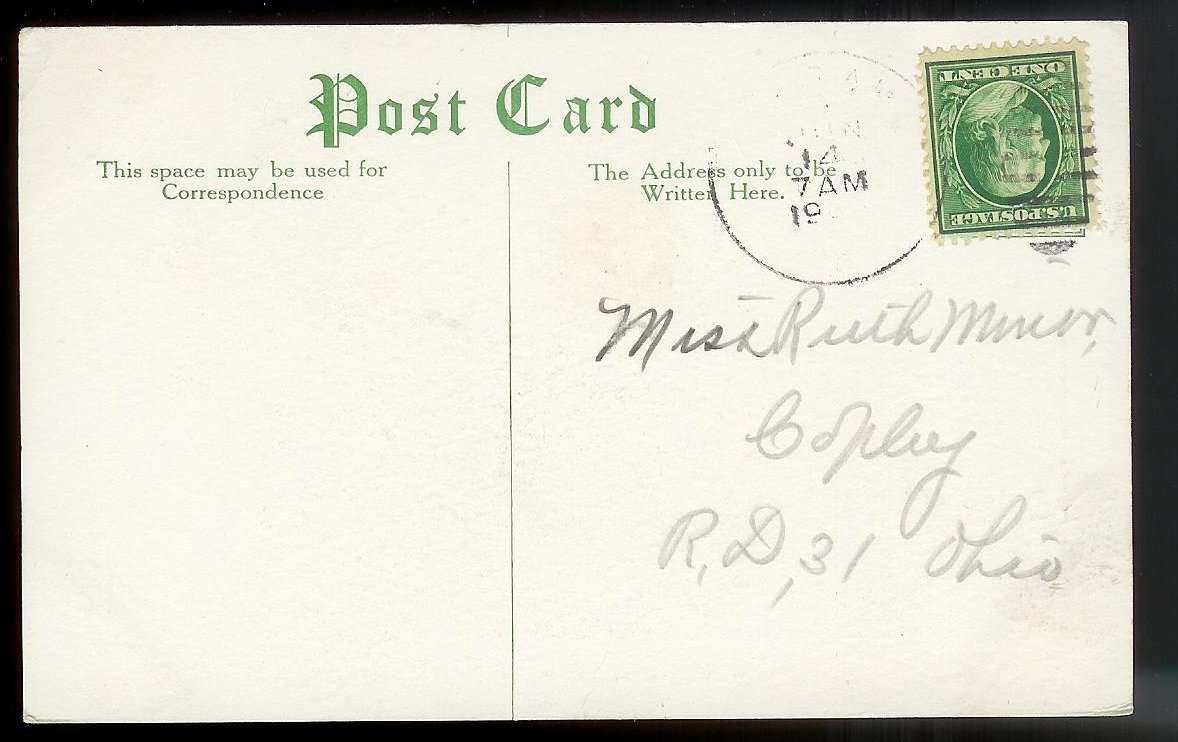 Post Card
This space may be used for
Correspondence
The Address only to be
Written Here.
14
7 AM
19
ONE CENT
U.S. POSTAGE
Miss Ruth Minor,
Copley
R.D, 31 Ohio